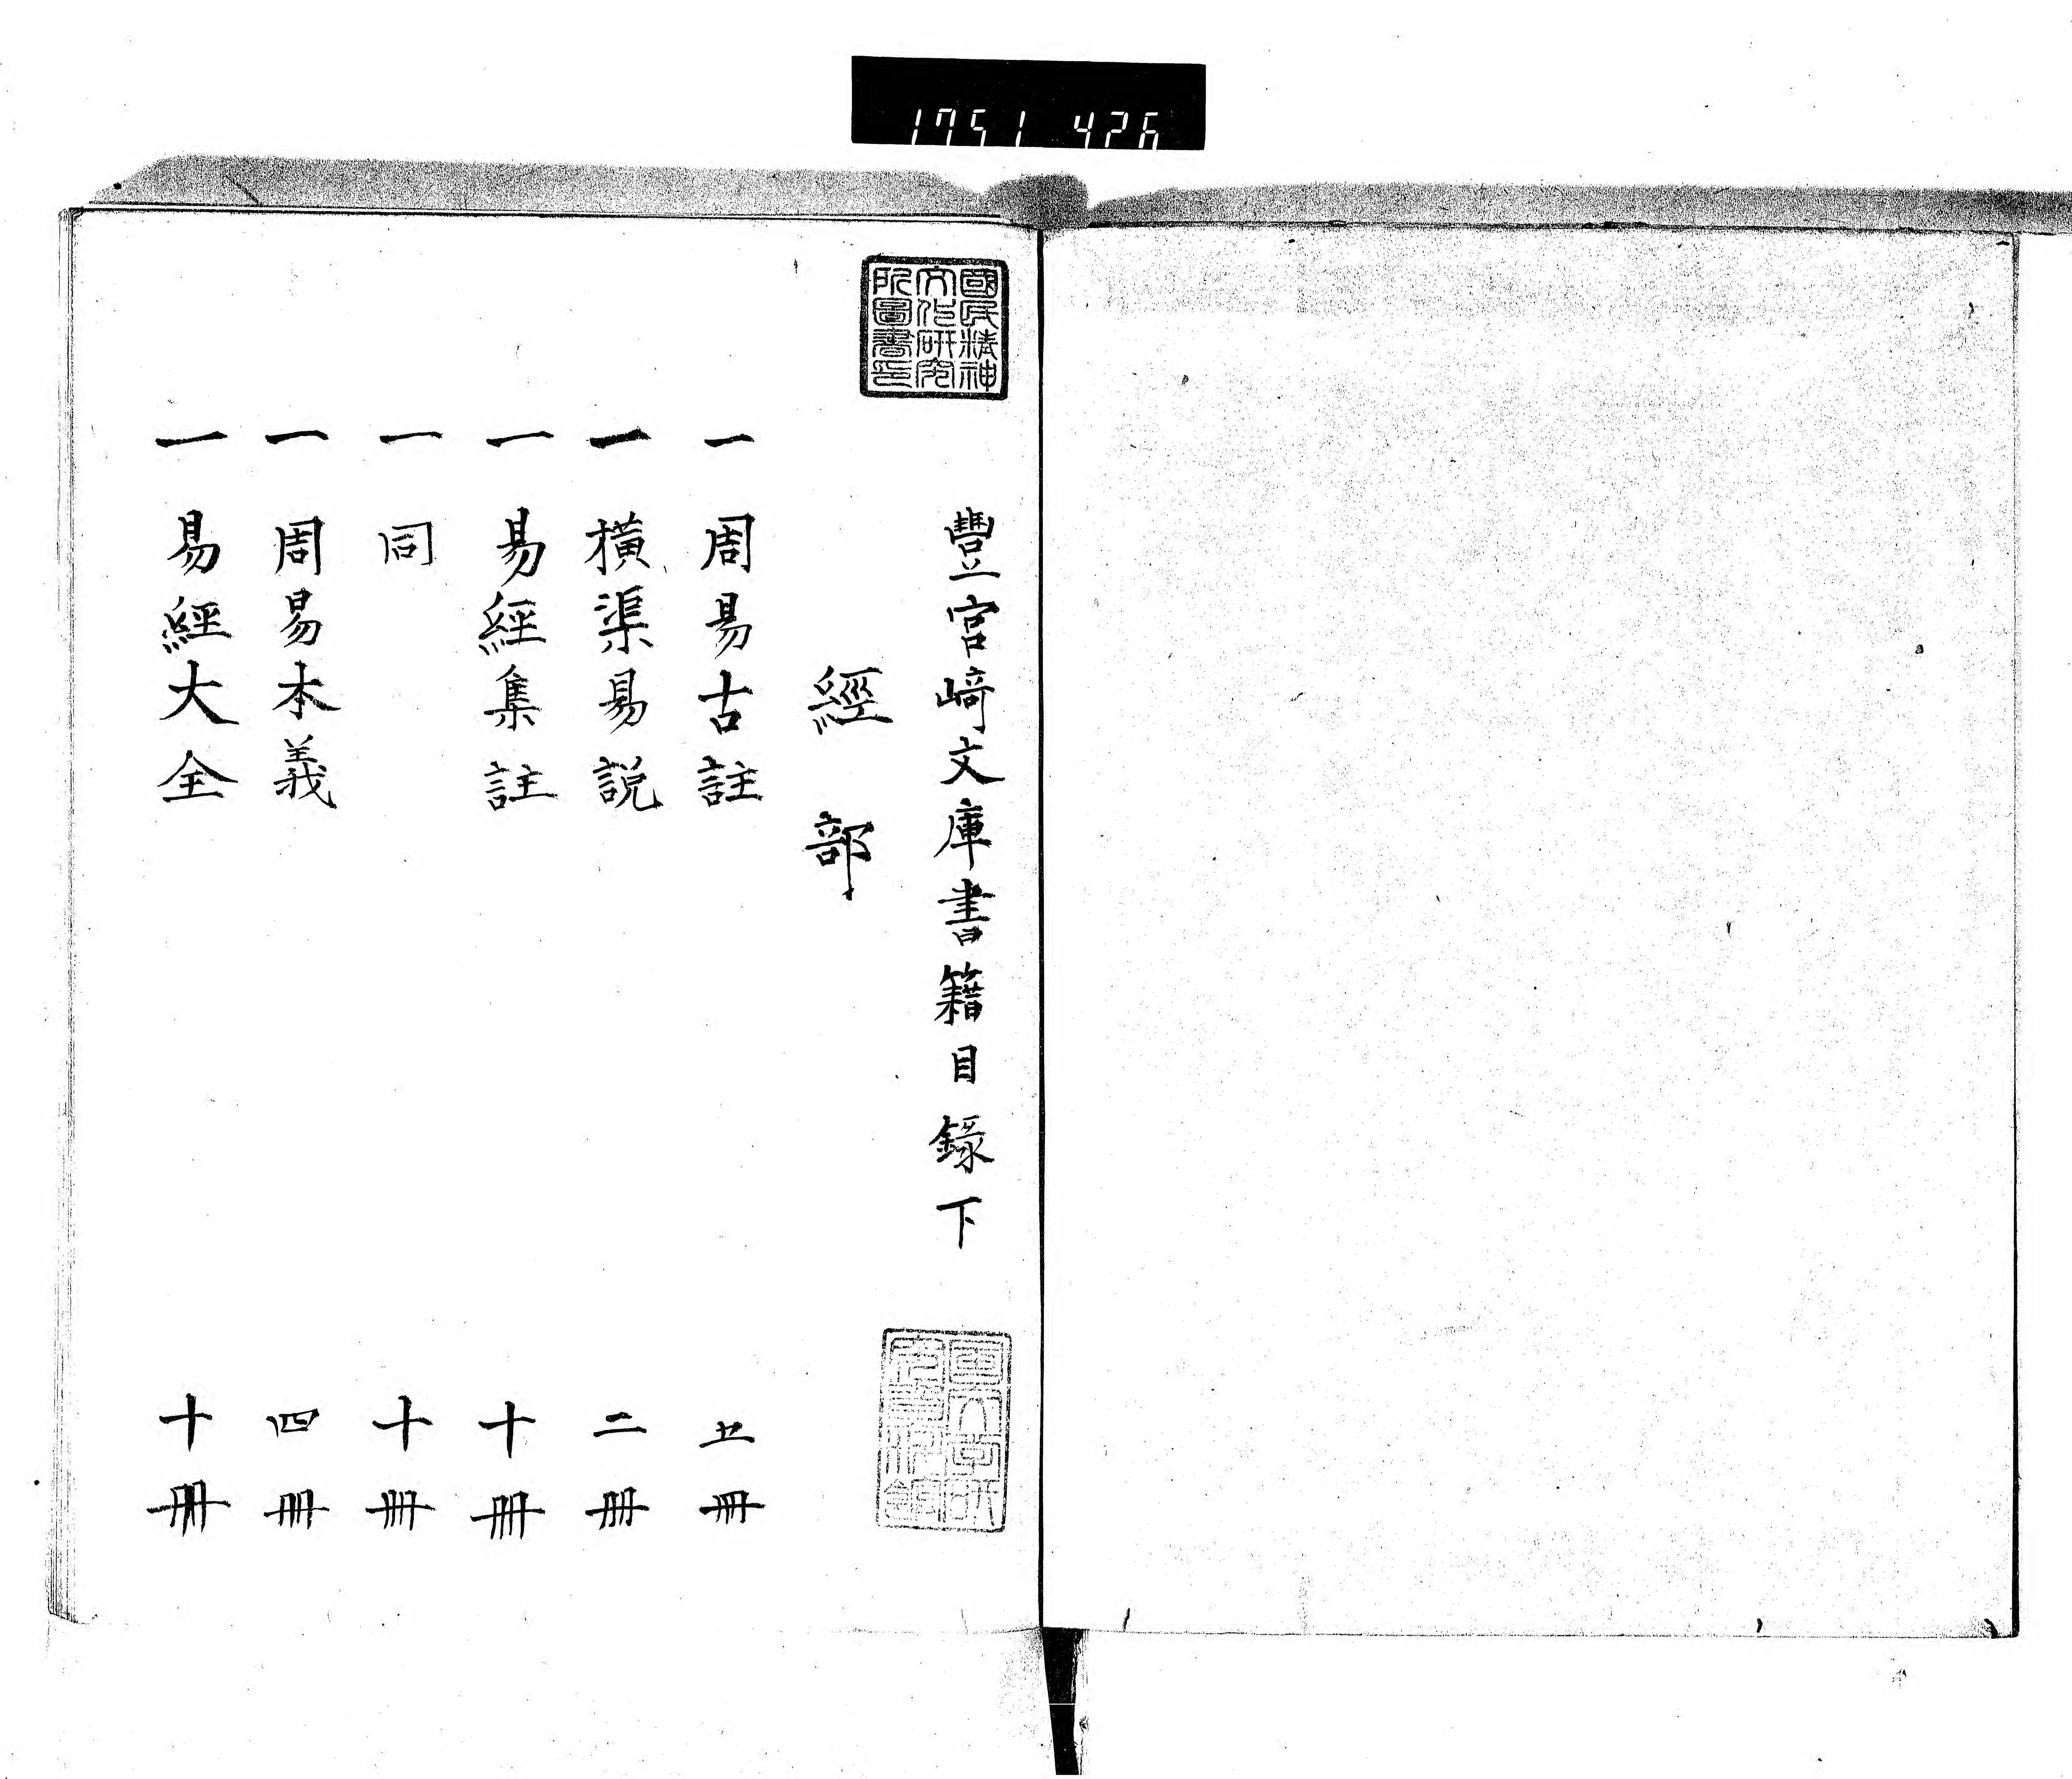 1751 426
國民精神
文化研究
所圖書印
豐宮崎文庫書籍目錄下
經部
一 周易古註 五冊
一 橫渠易說 二冊
一 易經集註 十冊
一 同 十冊
一 周易本義 四冊
一 易經大全 十冊